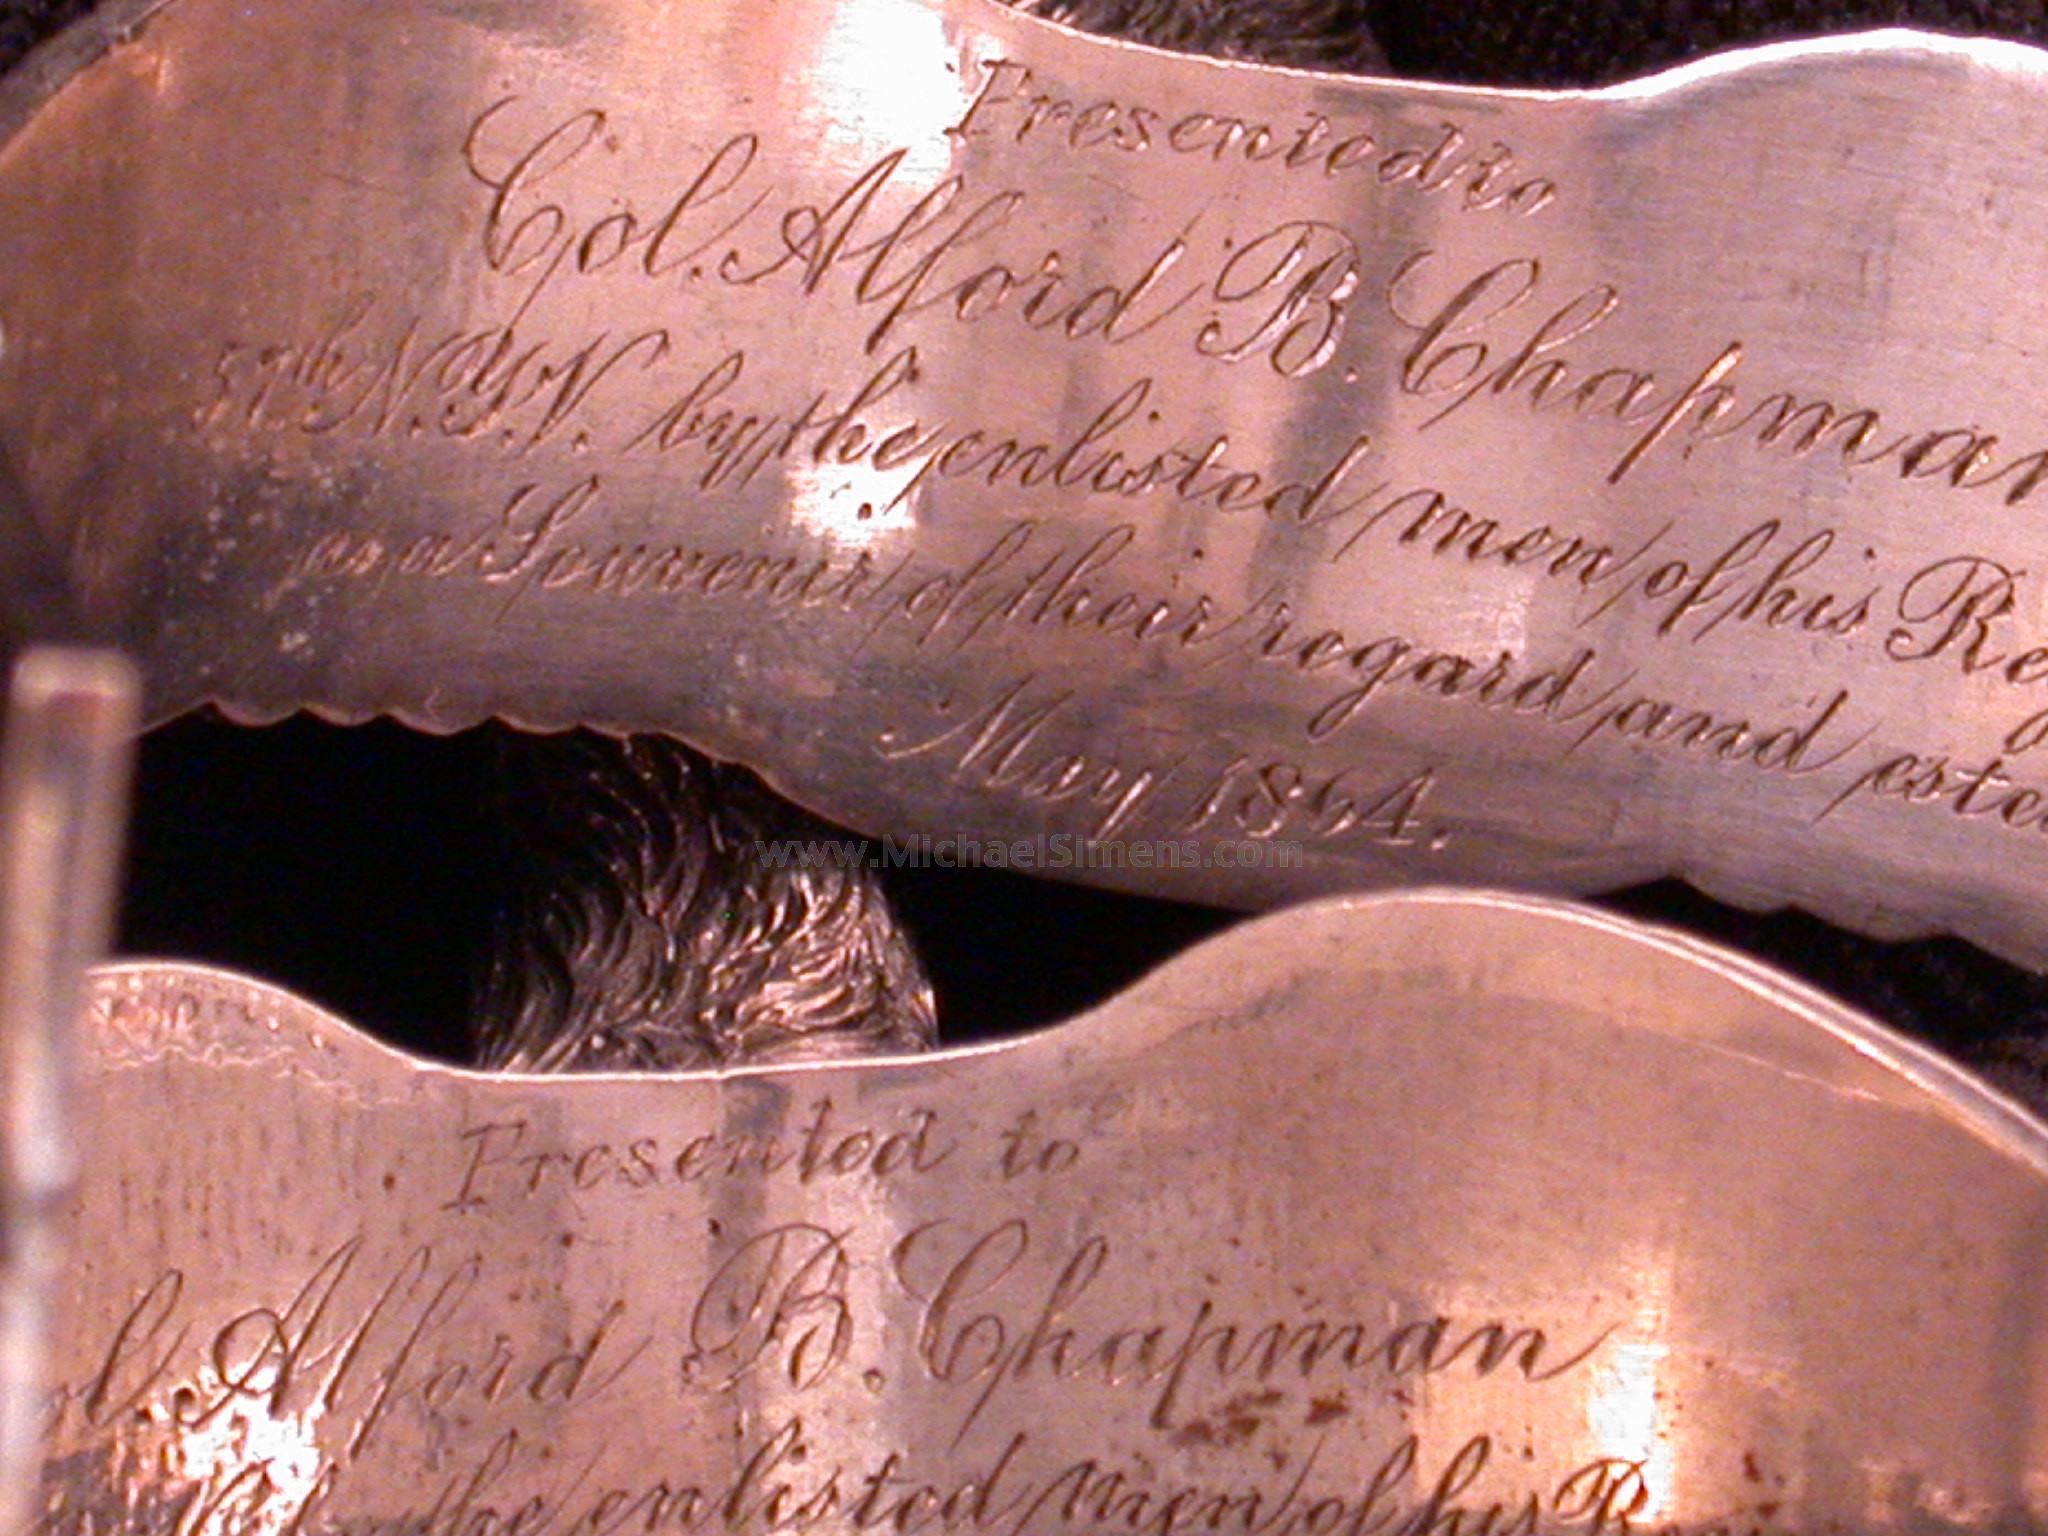 Presented to
Col. Alford B. Chapman
57th N.Y.V. by the enlisted men of his Reg
as a Souvenir of their regard and estee
May 1864.
www.MichaelSimens.com
Presented to
ol Alford B. Chapman
by the enlisted men of his Reg